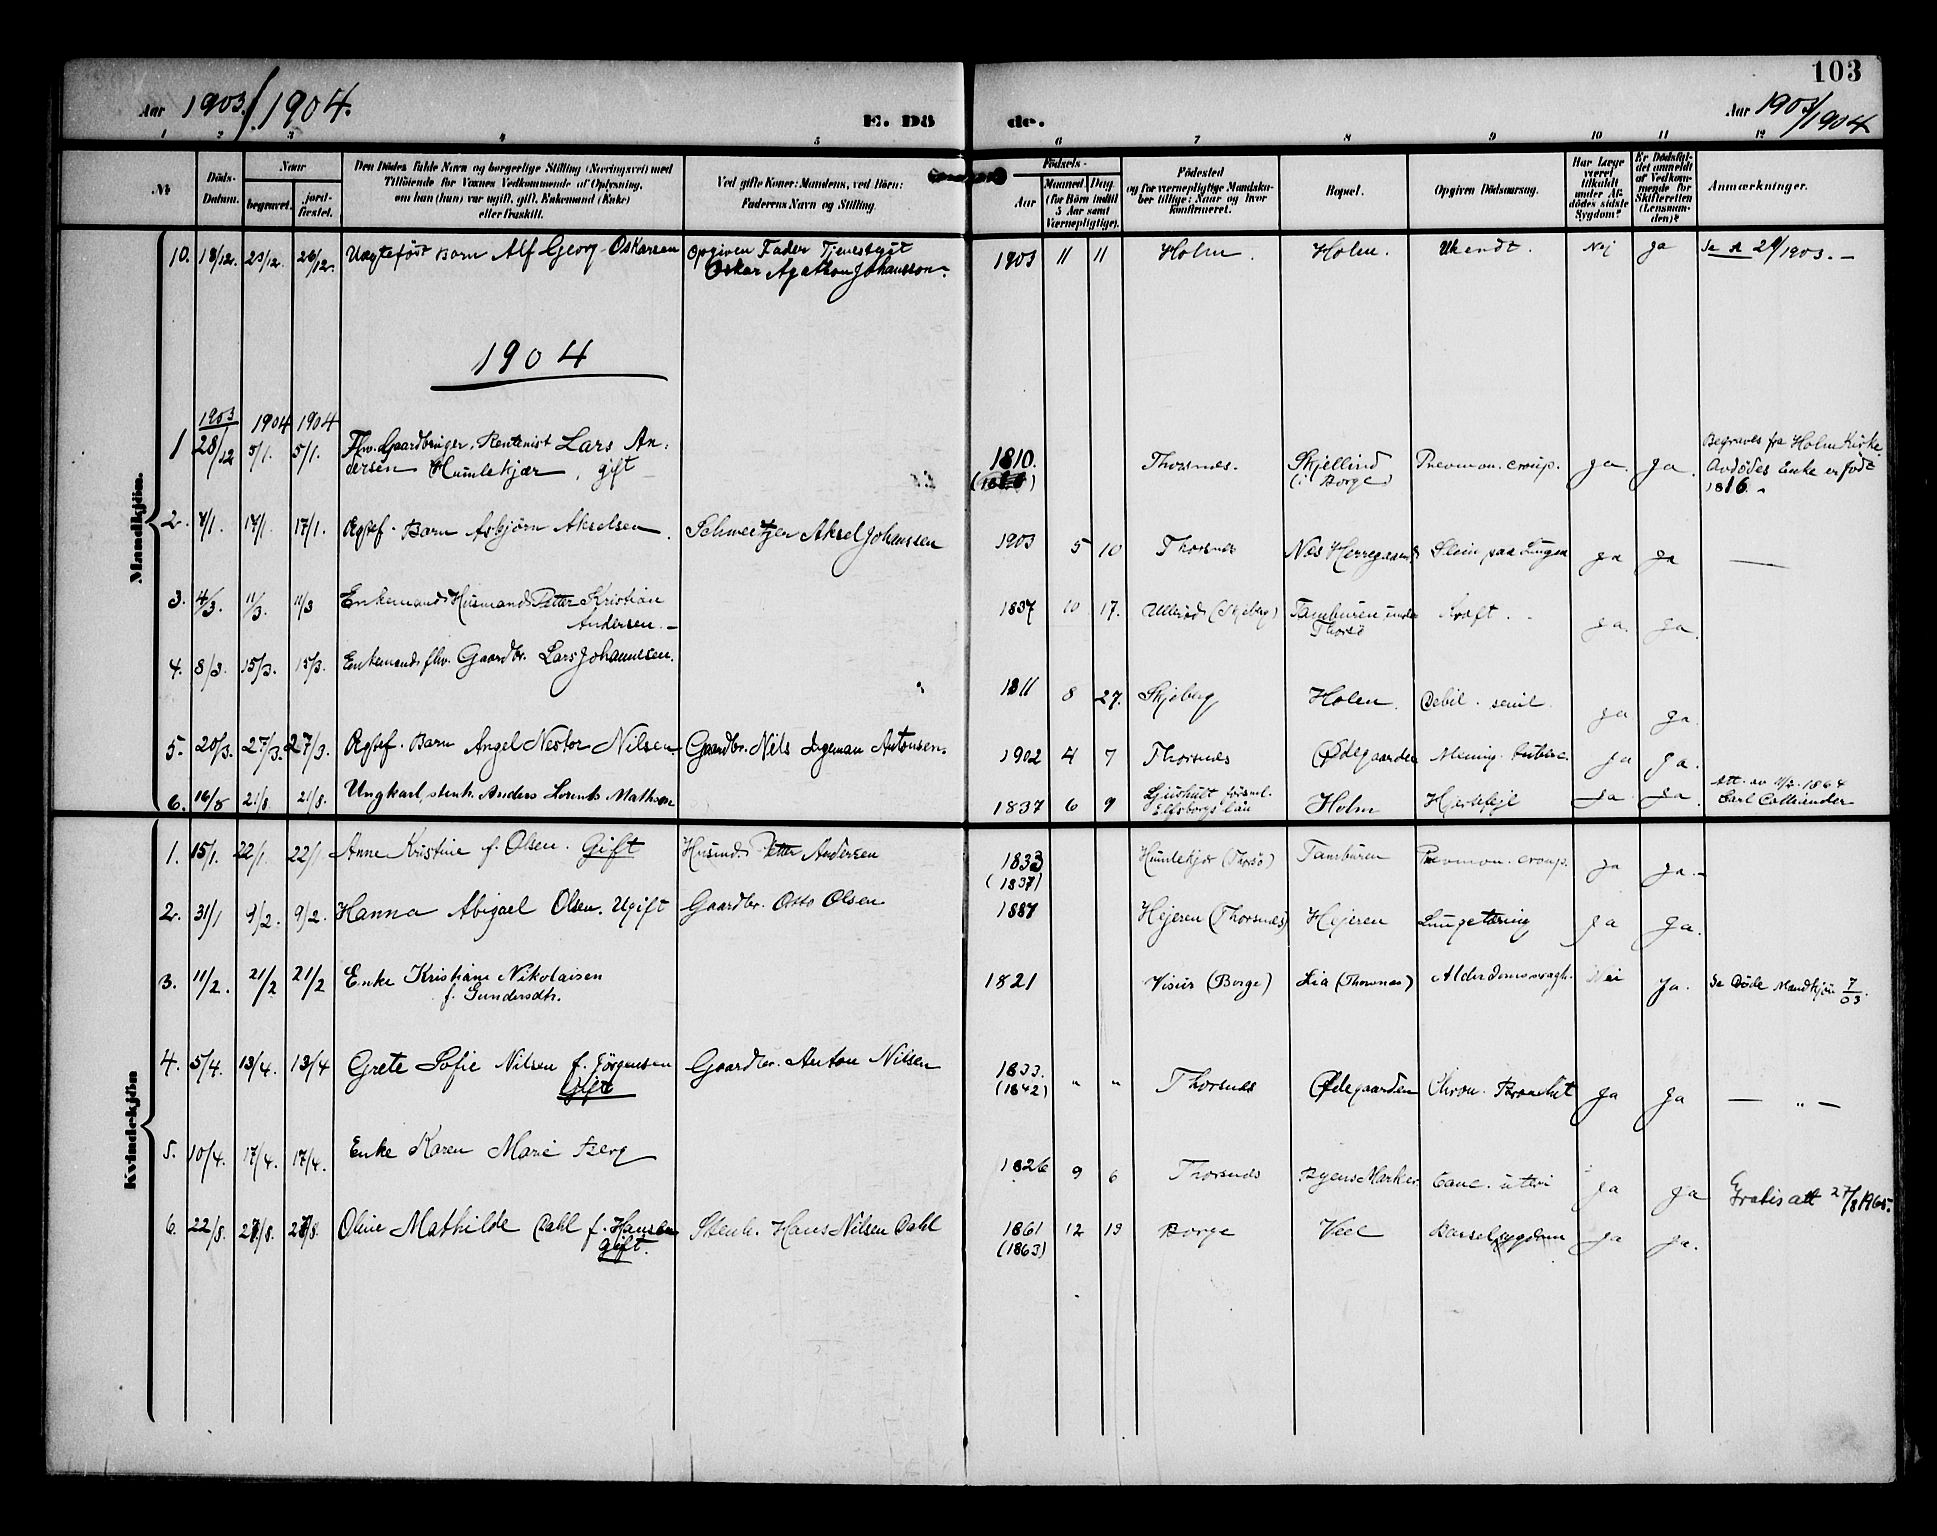 103
Aar 1903/1904.
E. Dö
de.
Aar 1903/1904
1 2 3 4 5 6 7 8 9 10 11 12
No
Döds-Datum.
Naar
begravet.
jord-fæstet.
Den Dödes fulde Navn og borgerlige Stilling (Næringsvei) med
Tilföiende for Voxnes Vedkommende af Oplysning,
om han (hun) var ugift, gift, Enkemand (Enke)
eller fraskilt.
Ved gifte Koner: Mandens, ved Börn:
Faderens Navn og Stilling.
Födsels-
Aar
Maaned Dag
(for Börn indtil
5 Aar samt
Værnepligtige).
Födested
og for værnepligtige Mandska-
ber tillige: Naar og hvor
konfirmeret.
Bopæl.
Opgiven Dödsaarsag.
Har Læge
været
tilkaldt
under Af-
dödes sidste
Sygdom?
Er Dödsfal-
det anmeldt
af Vedkom-
mende for
Skifteretten
(Lensman-
den)?
Anmærkninger.
Mandkjön.
10. 18/12. 23/12. 26/12. Uægtefödt Barn Alf Georg Oskarsen Opgiven Fader Tjenestgut
Oskar Agathon Johansson. 1903 11 11 Holm. Holm. Ukendt. Nej Ja Se A 29/1903. —
1904
1903 1904 1904
1 28/12 5/1. 5/1. Fhv. Gaardbruger, Rentenist Lars An-
dersen Humlekjær, gift 1810. Thorsnes. Skjellind
(i Borge) Pneumon. croup. Ja. Ja. Begraves fra Holm Kirke
Avdødes Enke er født
1816.
2. 7/1. 17/1. 17/1. Ægtef. Barn Asbjørn Akselsen. Schweitzer Aksel Johanssen 1903 5 10 Thorsnes Nes Herregaard Sleim paa Lungen Ja Ja —
3. 4/3. 11/3. 11/3 Enkemand, Husmand Petter Kristian
Andersen. — 1837 10 17. Ullerød (Skjeberg) Tamburen under
Thorsø Kræft. Ja. Ja.
4. 8/3. 15/3. 15/3. Enkemand, fhv. Gaardbr. Lars Johannesen. 1811 8 27. Skjeberg Holm. Debil. senil. Ja Ja.
5. 20/3. 27/3. 27/3. Ægtef. Barn Angel Nestor Nilsen. Gaardbr. Nils Ingeman Antonsen. 1902 4 7 Thorsnes Ødegaarden Mening. tuberc. Ja Ja.
6. 16/8 21/8 21/8. Ungkarl, stenh. Anders Lorents Mathson 1837 6 9 Ljushult försml.
Elfsborgs län Holm Hjertefejl Ja. Ja. Att. av 11/2. 1864
Carl Collliander
Kvindekjön
1. 15/1. 22/1. 22/1 Anne Kristine f. Olsen. Gift Husmd. Petter Andersen 1833
(1837) Humlekjær (Thorsø) Tamburen Pneumon. croup. Ja Ja.
2. 31/1 9/2. 9/2. Hanna Abigael Olsen. Ugift Gaardbr. Otto Olsen 1887 Hejeren (Thorsnes) Hejeren Lungetæring Ja Ja.
3. 11/2. 21/2 21/2 Enke Kristiane Nikolaisen
f. Gundersdtr. 1821 Visur (Borge) Lia (Thorsnes) Alderdomssvagh. Nei Ja. Se Døde Mandkjøn 7/03.
4. 5/4. 13/4. 13/4 Grete Sofie Nilsen f. Jørgensen
Gift Gaardbr. Anton Nilsen 1833.
(1842) " " Thorsnes Ødegaarden Chron. Bronchit Ja Ja — „ —
5. 10/4. 17/4. 17/4. Enke Karen Marie Berg 1826 9 6 Thorsnes Byens Marker Canc. uteri Ja Ja Gratis att 27/8 1905.
6. 22/8. 28/8. 28/8. Oline Mathilde Dahl f. Hansen
Gift. Stenh. Hans Nilsen Dahl 1861
(1863) 12 19 Borge Veel Barselsygdom Ja Ja.